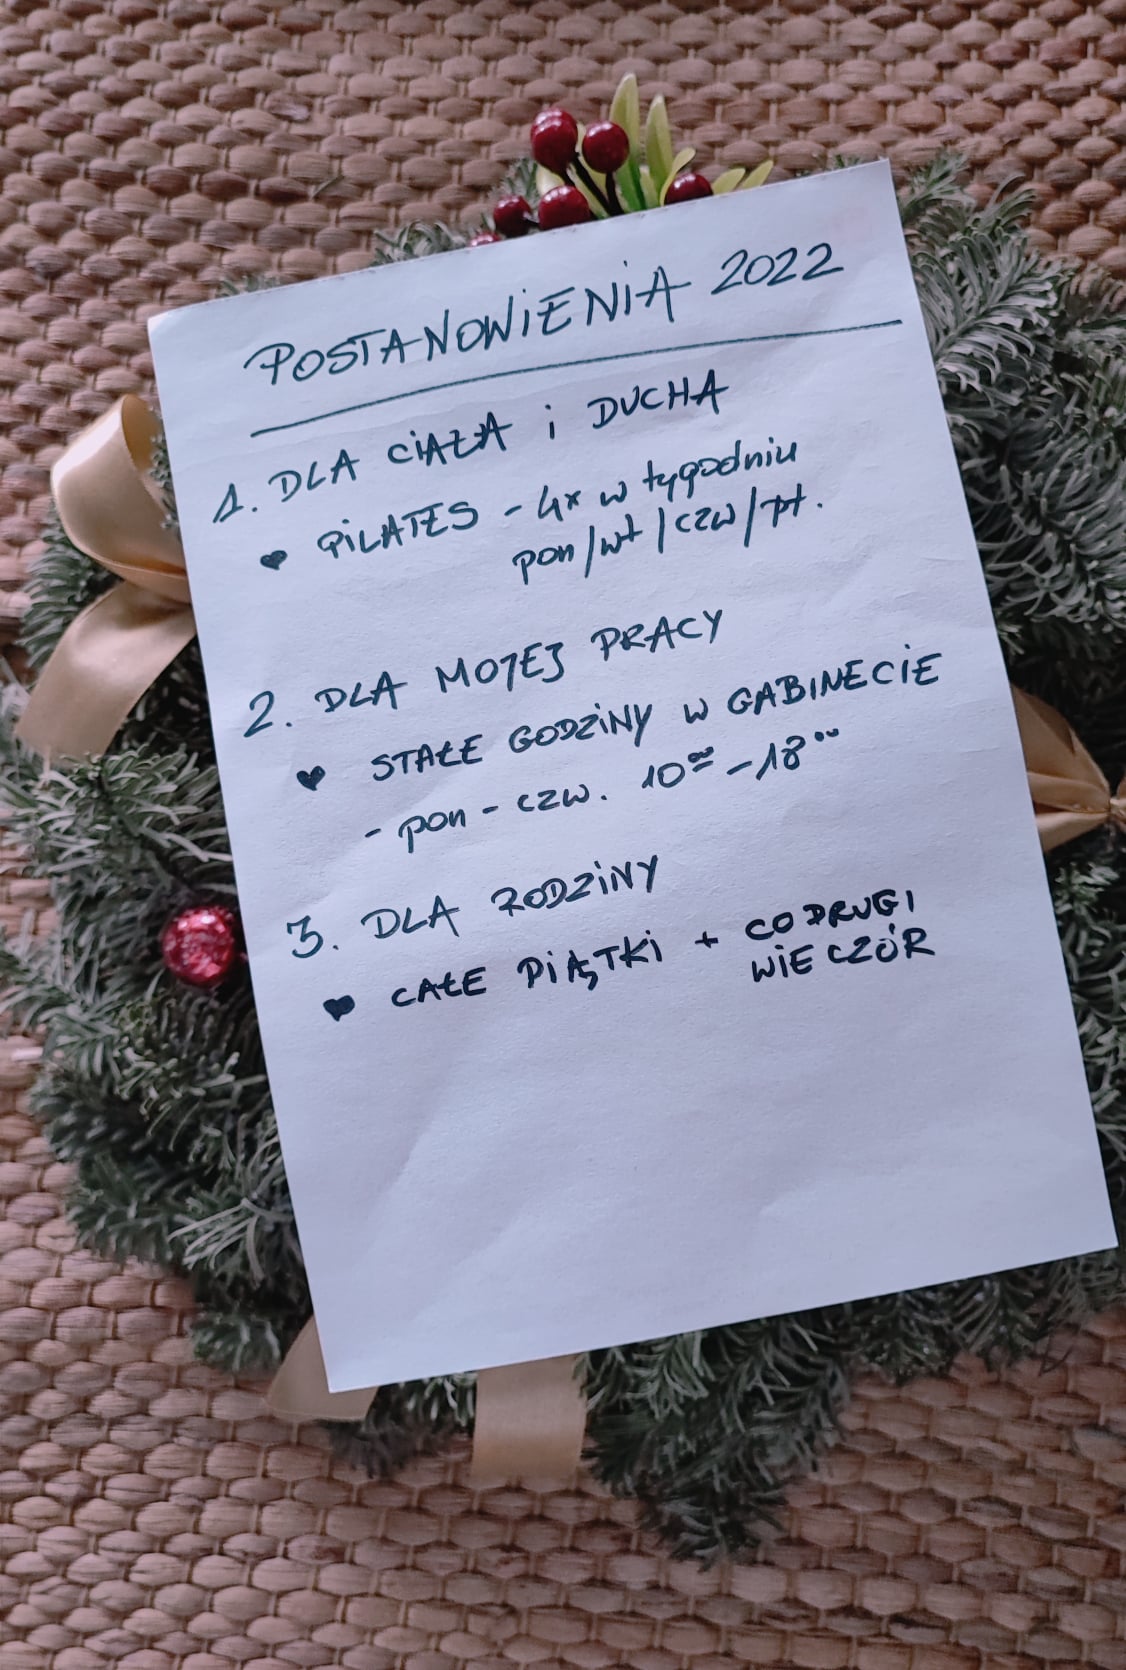 POSTANOWIENIA 2022
1. DLA CIAŁA i DUCHA
♥ PILATES - 4x w tygodniu
pon/wt/czw/pt.
2. DLA MOJEJ PRACY
♥ STAŁE GODZINY W GABINECIE
- pon - czw. 10⁰⁰ - 18⁰⁰
3. DLA RODZINY
♥ CAŁE PIĄTKI + CO DRUGI
WIECZÓR